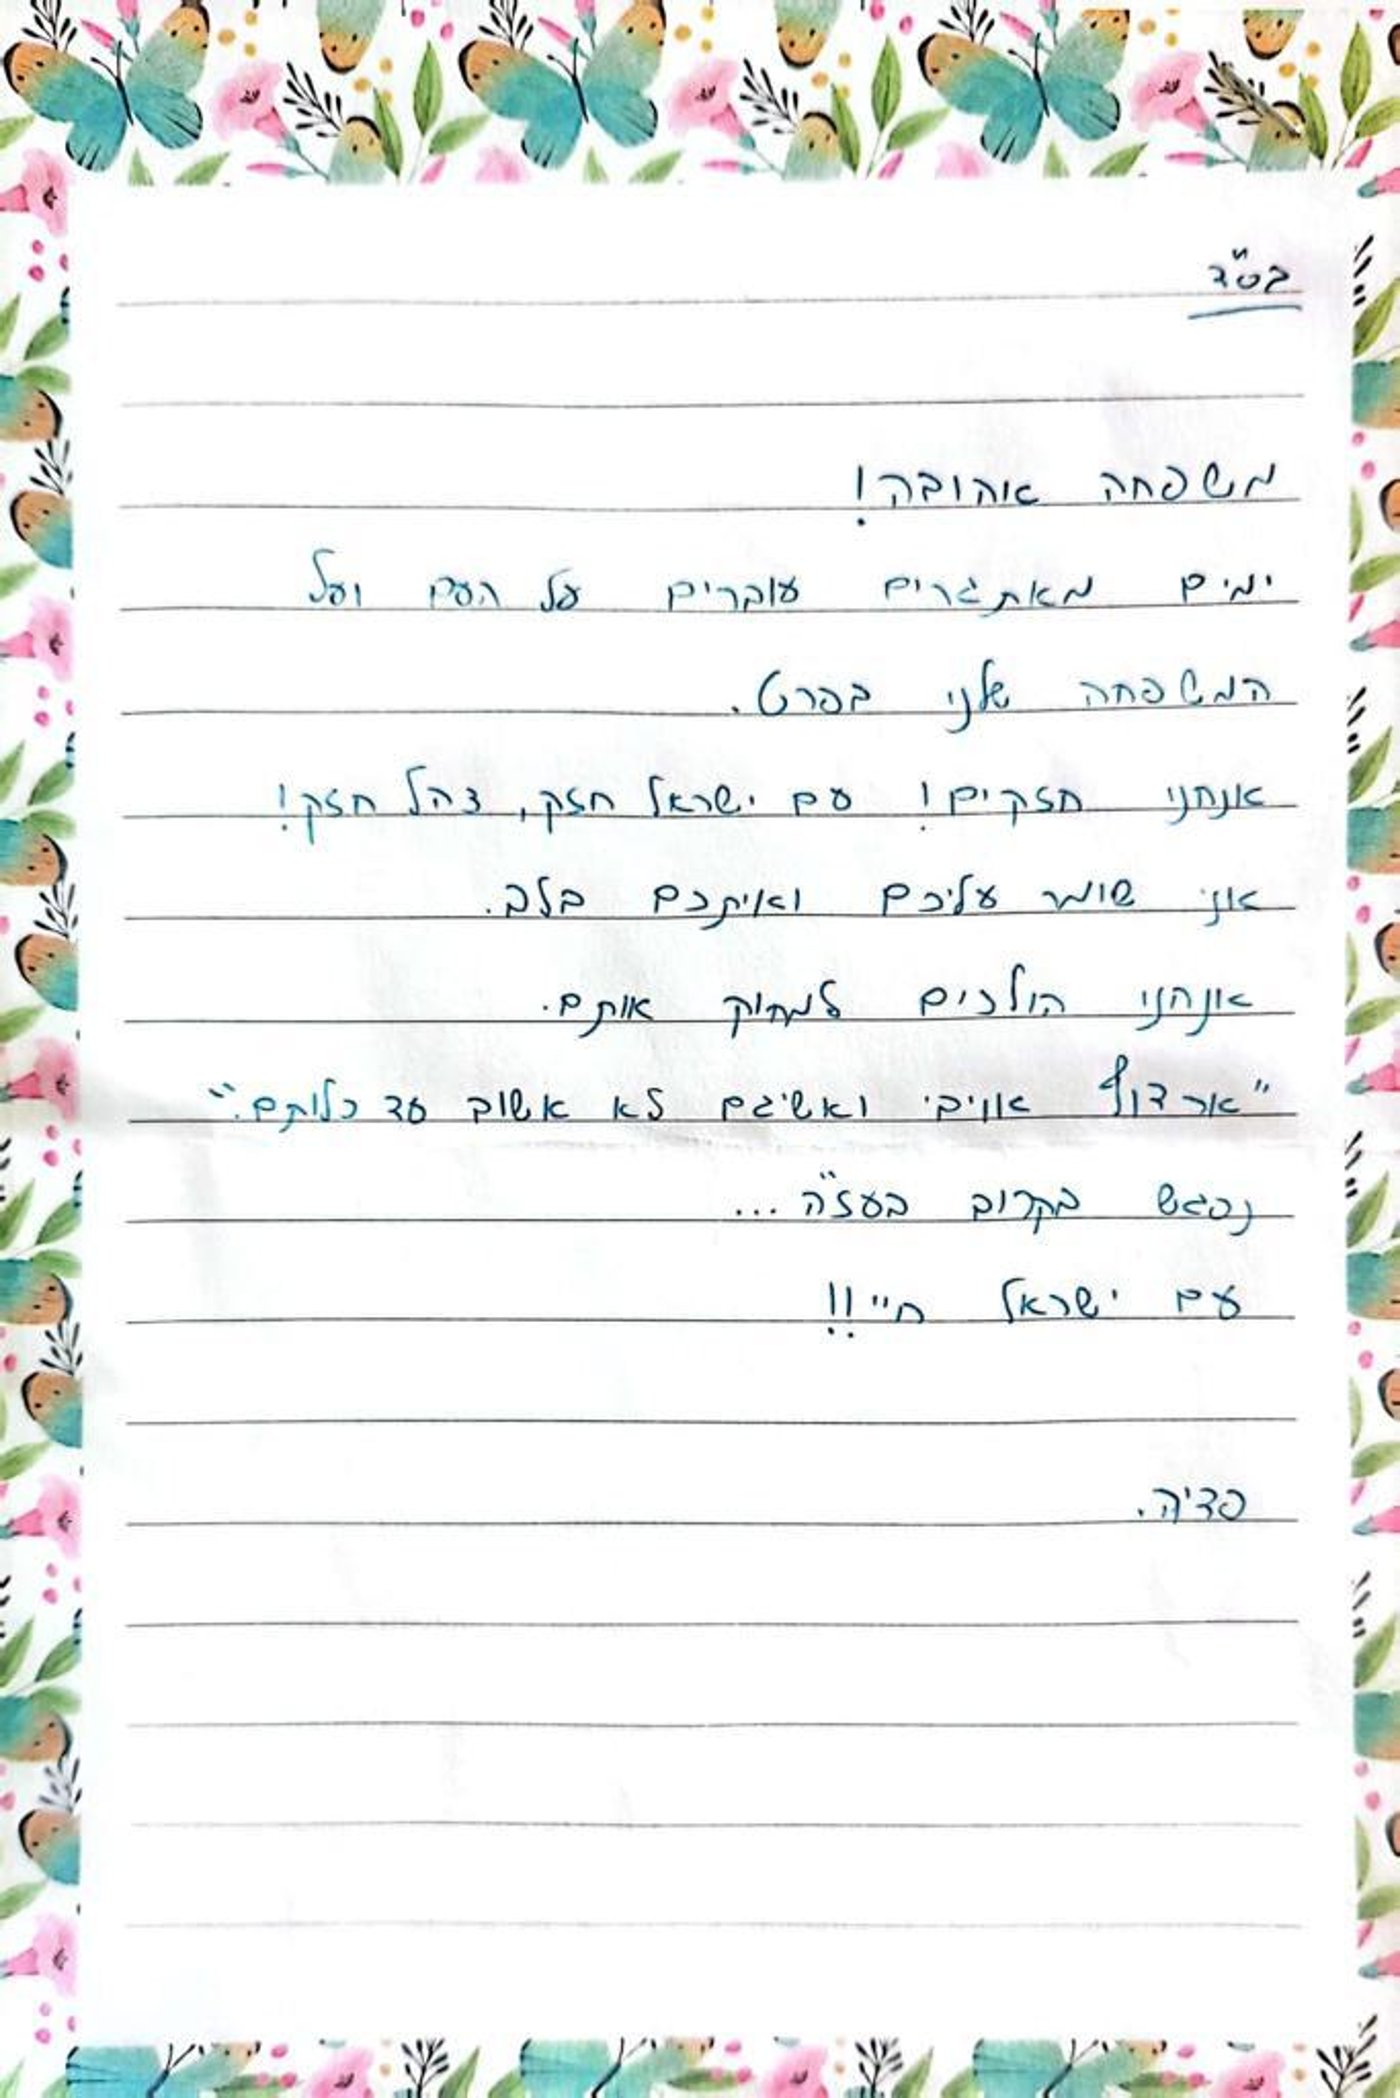 בס"ד
משפחה אהובה!
ימים מאתגרים עוברים על העם ועל
המשפחה שלנו בפרט.
אנחנו חזקים! עם ישראל חזק, צהל חזק!
אני שומר עליכם ואיתכם בלב.
אנחנו הולכים למחוק אותם.
"ארדוף אוייבי ואשיגם לא אשוב עד כלותם."
נפגש בקרוב בעז"ה...
עם ישראל חי"!!
פדיה.